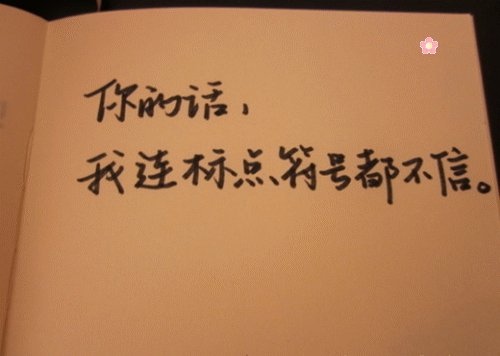 你的话，
我连标点符号都不信。